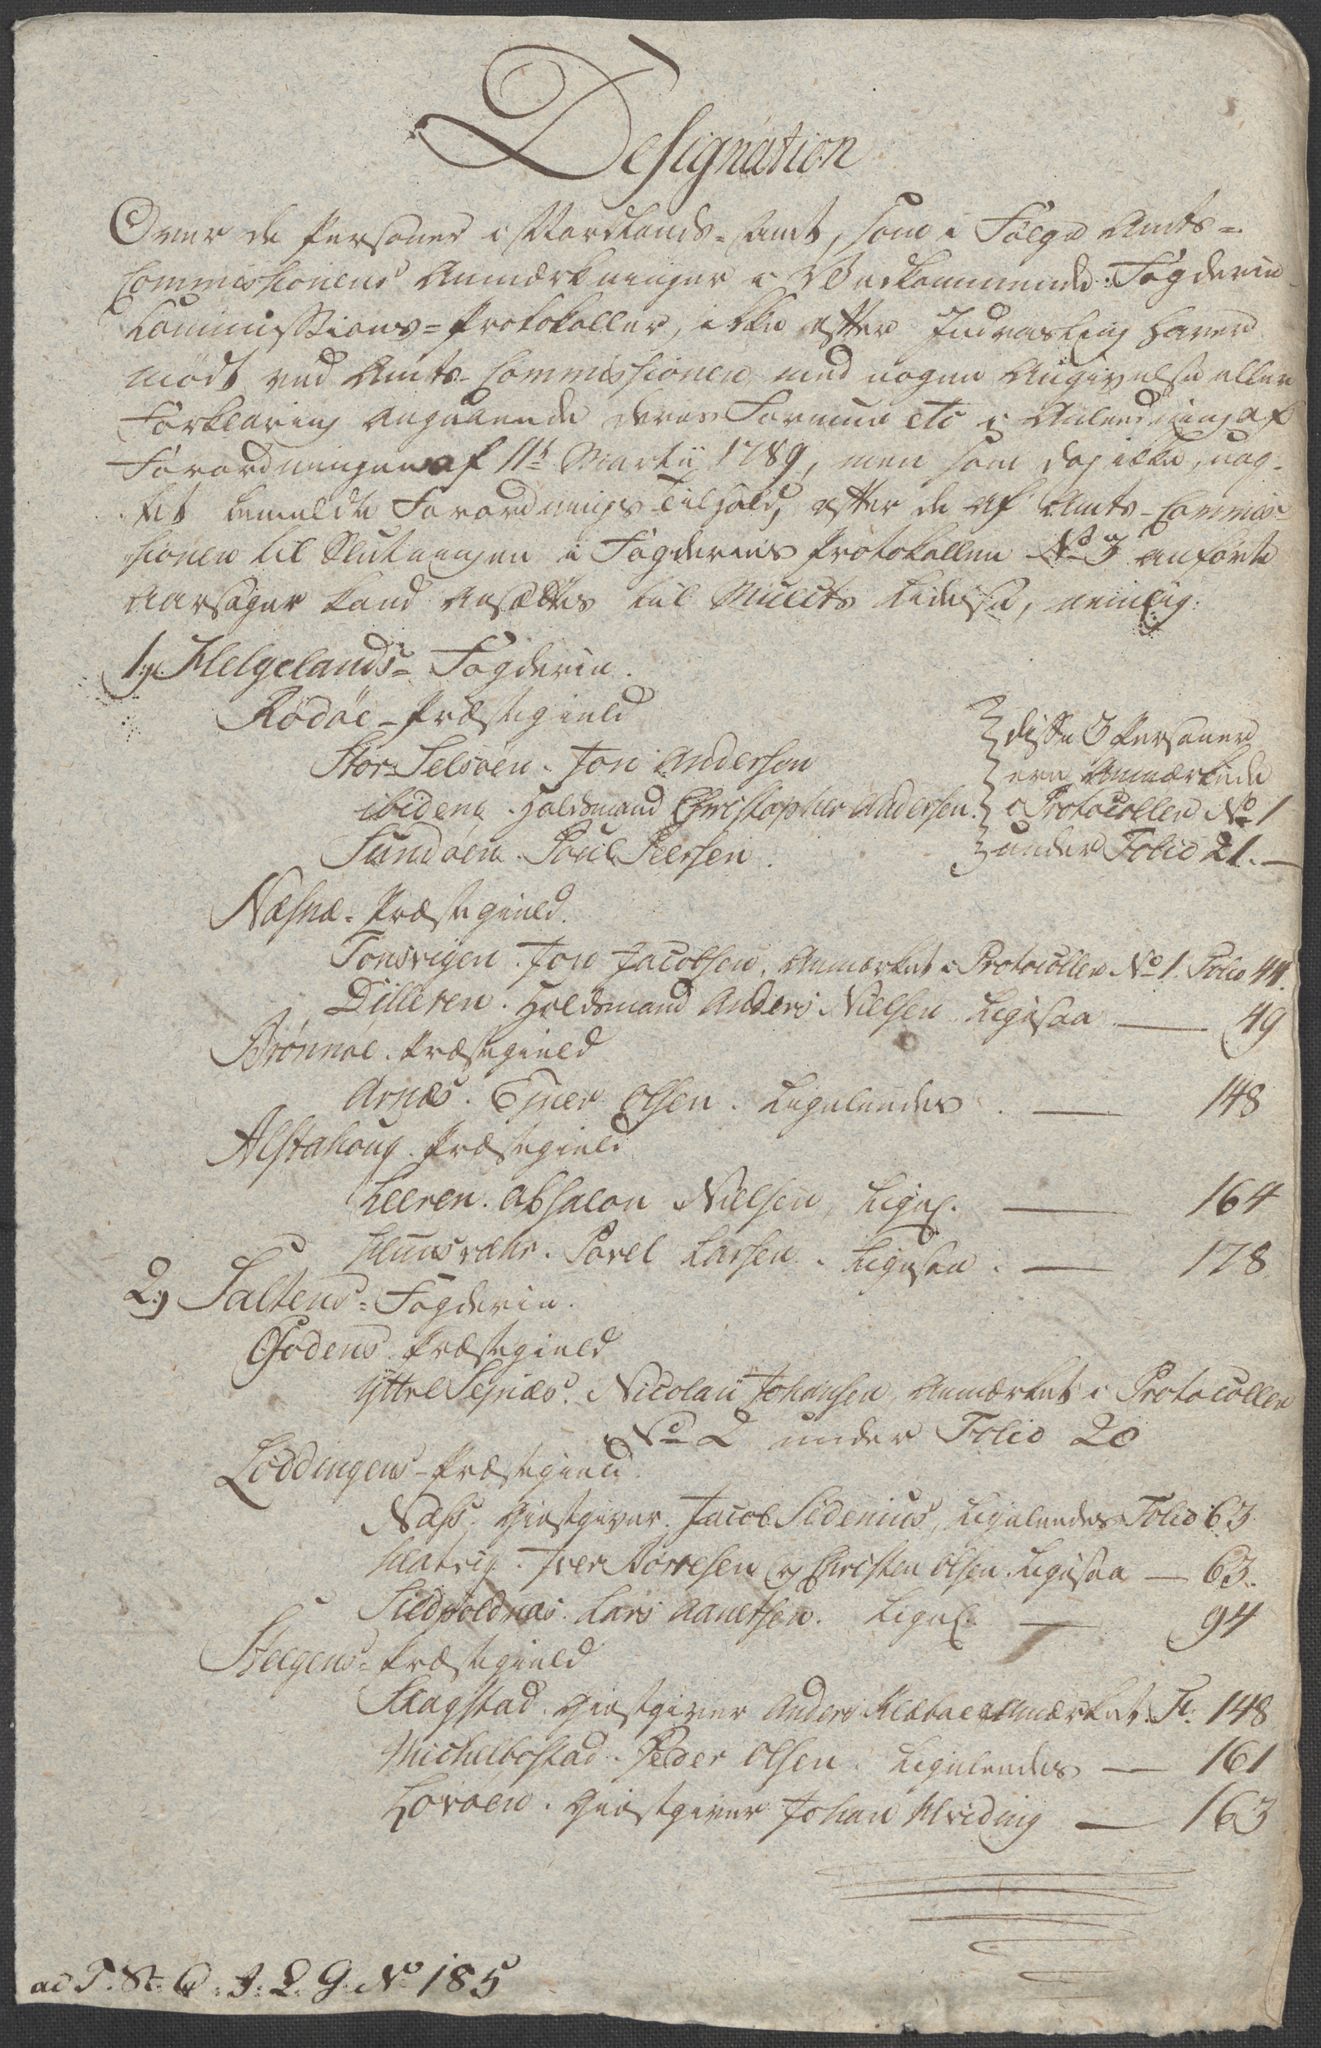 Designation
Over de Personer i Nordlands-Amt, som i Følge Amts-
Commissionens Anmærkninger i Vedkommende Fogderie
Commissions-Protokoller, ikke efter Indvarsling haver
mødt ved Amts-Commissionen med nogen Angivelse eller
Forklaring angaaende deres Formue etc i Anledning af
Forordningen af 11te Martii 1789, men som dog ikke, uag-
tet bemeldte Forordnings Tilhold, efter de af Amts-Commis-
sionen til Slutningen i Fogderiets Protokoller No 3 anførte
Aarsager kand ansættes til Mulcts Lidelse, nemlig:
1) Helgelands-Fogderie.
Rødøe-Præstegield
Stor-Selsøen. Jon Andersen
ibidem. Holdsmand Christopher Andersen.
Sundøen. Poul Peersen.
disse 3 Personer
ere Anmærkede
i Protocollen No 1
under Folio 21.
Næsne-Præstegield.
Tonsvigen. Jon Jacobsen. Anmærket i Protocollen No 1. Folio 44.
Dilleren. Holdsmand Anders Nielsen Ligesaa — 49
Brønnøe Præstegield
Arnæs. Ejner Olsen. Ligeledes. — 148
Alstahoug Præstegield
Leeren. Absalon Nielsen, Ligel. — 164
Povel Larsen. Ligesaa. — 178
2) Saltens-Fogderie.
Ofodens Præstegield
Yttre Sejnæs. Nicolai Johansen, Anmærket i Protocollen
No 2 under Folio 20
Loddingens-Præstegield.
Næss. Giestgiver Jacob Sidenius, Ligeledes Folio 63.
Iver Torresen og Christen Olsen. Ligesaa — 63.
Lars Ligel. — 94
Stegens-Præstegield
Skagstad. Giestgiver Anders Klæboe Anmærket. Fol. 148
Michelbostad. Peder Olsen. Ligeledes — 161
Lovøen. Giestgiver Johan Hveding — 163
ad T. St: C. J: L. G. No 185